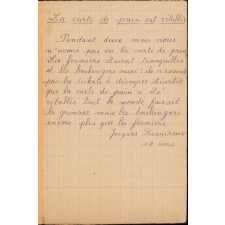 La carte de pain est rétablie
Pendant deux mois nous
n'avons pas eu la carte de pain
Les fermiers étaient tranquilles
et les boulangers aussi: ils n'avaient
pas les tickets à découper. Aussitôt
que la carte de pain a été
rétablie tout le monde faisait
la grimace mais les boulangers
encore plus que les fermiers
Jacques
12 ans